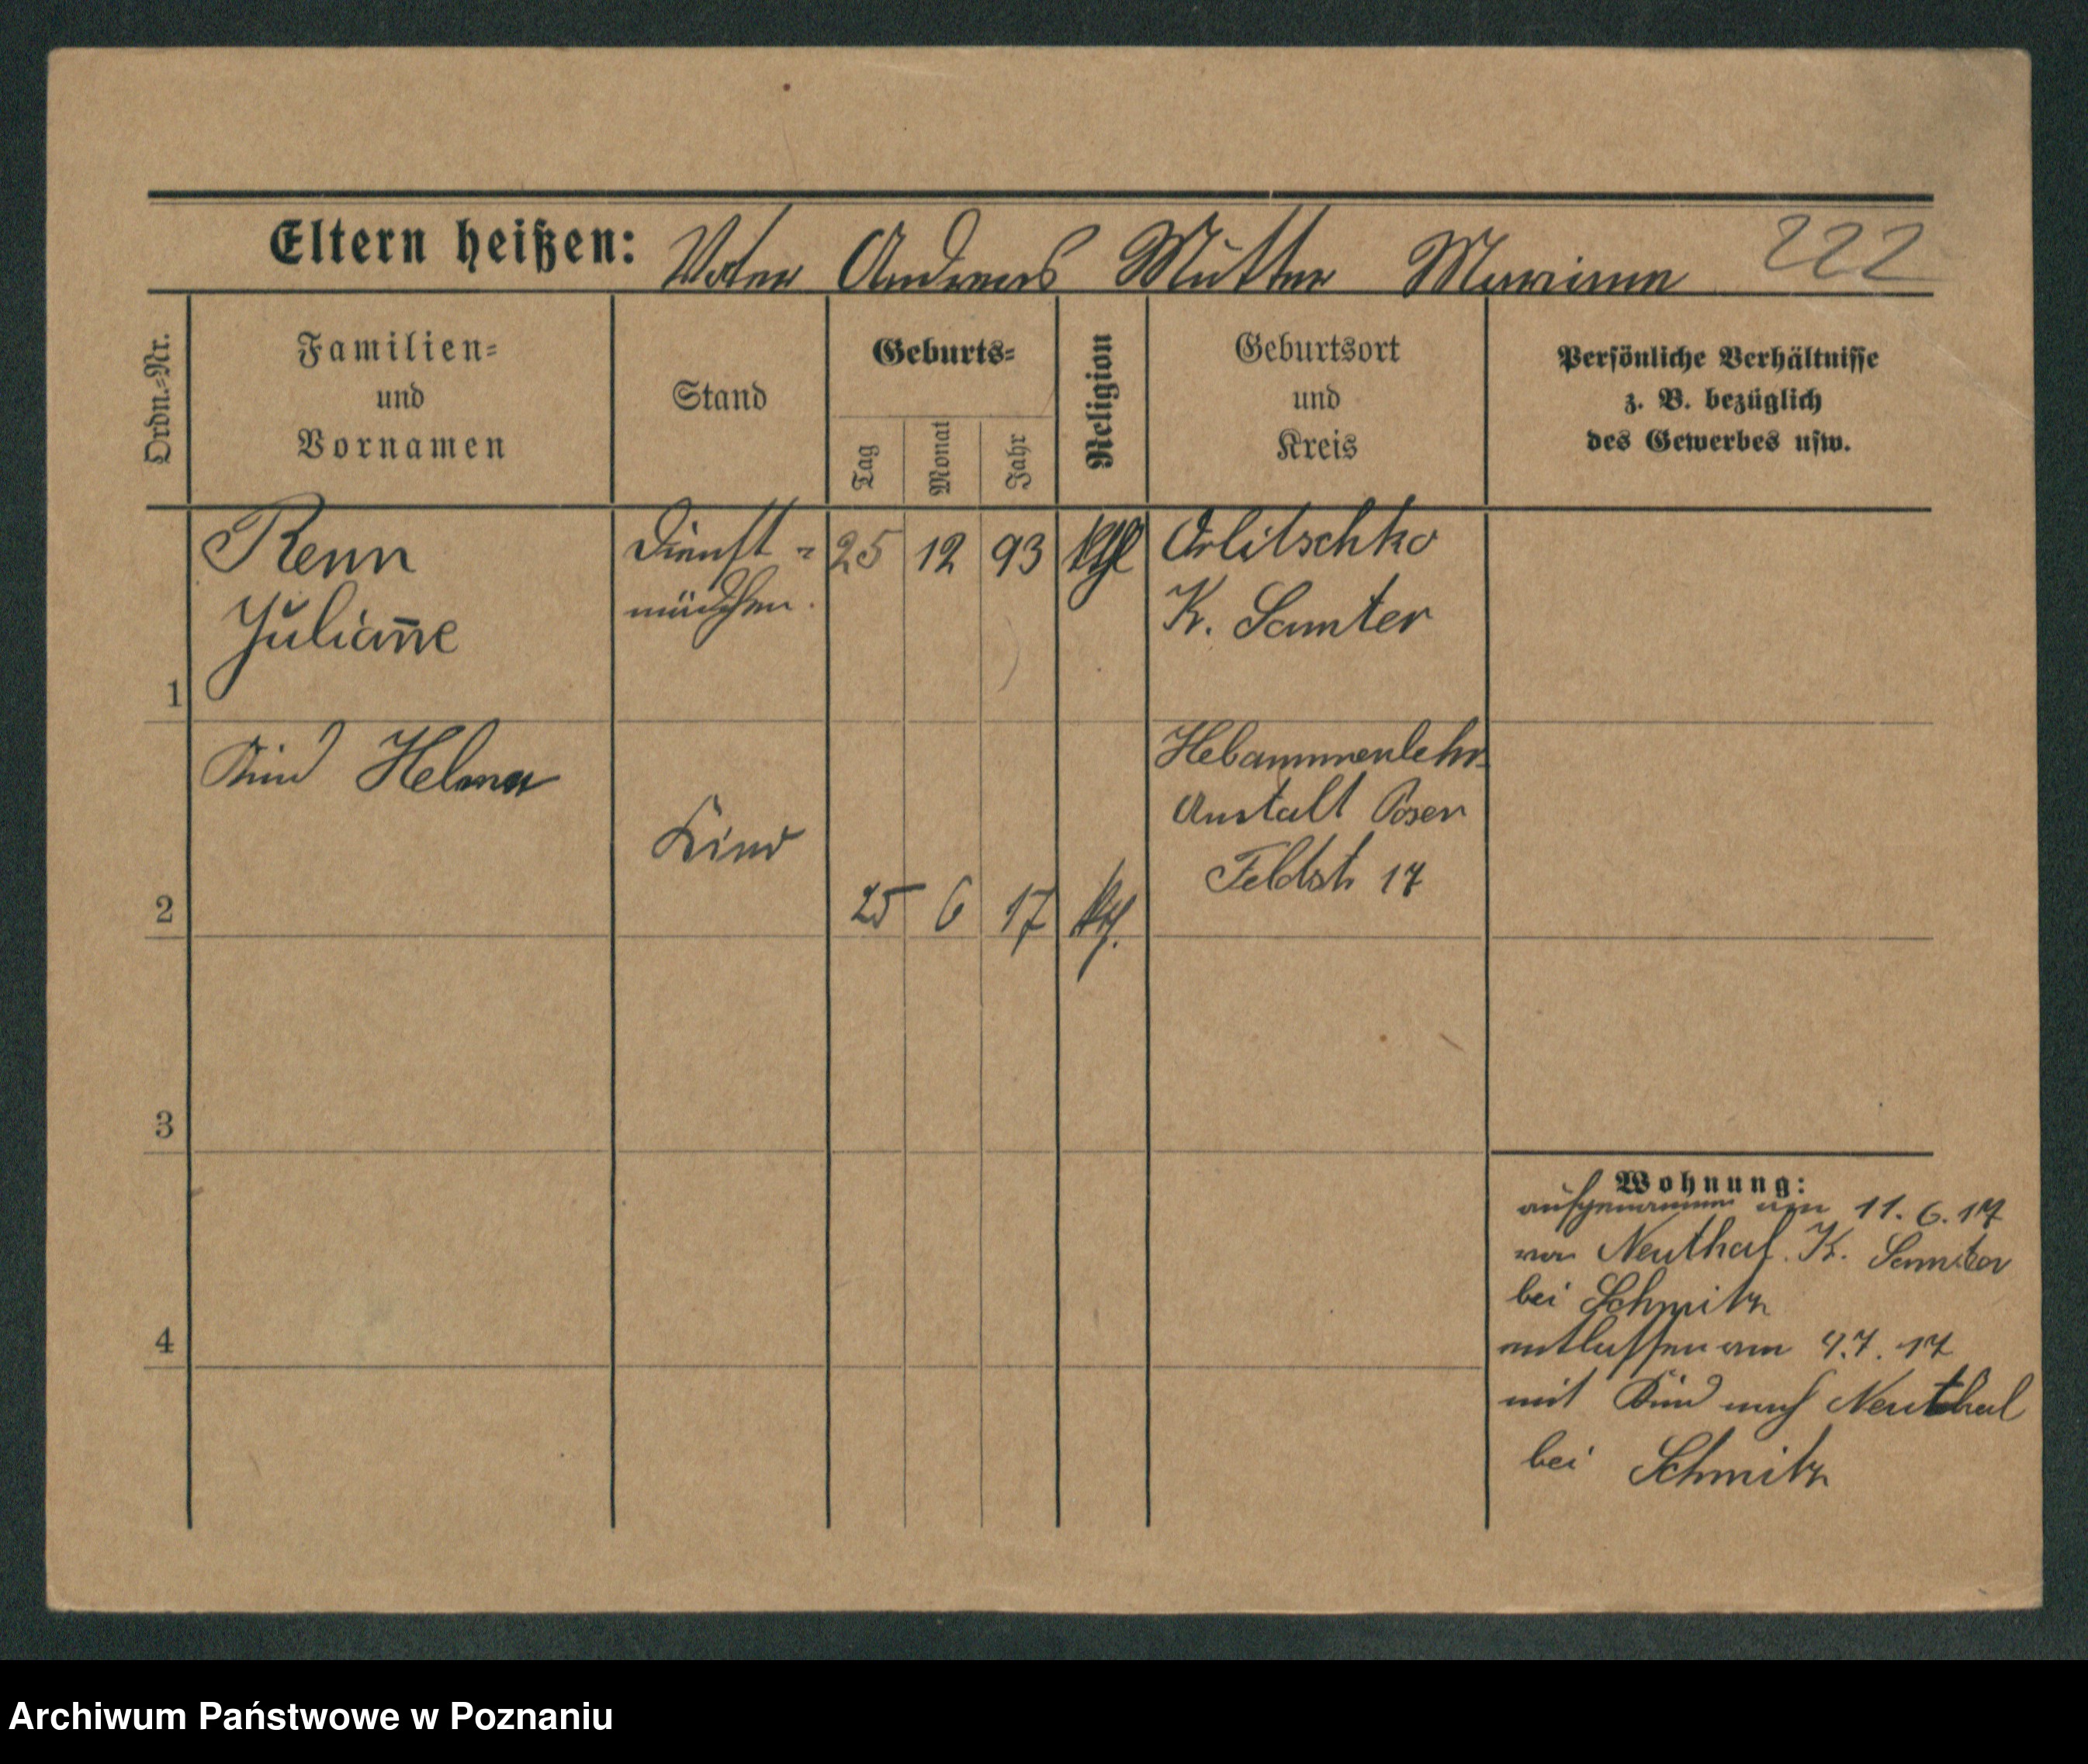 Eltern heißen: Vater Andreas Mutter Marianne 222
Ordn.-Nr.
Familien-
und
Vornamen
Stand
Geburts-
Tag
Monat
Jahr
Religion
Geburtsort
und
Kreis
Persönliche Verhältnisse
z. B. bezüglich
des Gewerbes usw.
1
Renn
Julian̄e
Dienst-
mädchen.
25 12 93 kthl
Orlitschko
K. Samter
2
Kind Helena
Kind
25 6 17 kth.
Hebammenlehr-
Anstalt Posen
Feldstr 17
3
4
Wohnung:
aufgenommen am 11. 6. 17
von Neuthal. K. Samter
bei Schmitz
entlassen am 9.7.17
mit Kind nach Neuthal
bei Schmitz
Archiwum Państwowe w Poznaniu